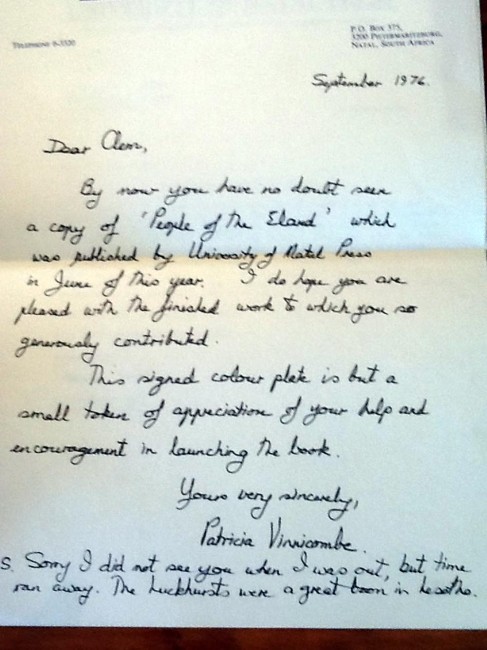 P.O. Box 375,
Telephone 6-3320
3200 Pietermaritzburg,
Natal, South Africa
September 1976.
Dear Clem,
By now you have no doubt seen
a copy of 'People of the Eland' which
was published by University of Natal Press
in June of this year. I do hope you are
pleased with the finished work to which you so
generously contributed.
This signed colour plate is but a
small token of appreciation of your help and
encouragement in launching the book.
Yours very sincerely,
Patricia Vinnicombe.
S. Sorry I did not see you when I was out, but time
ran away. The Luckhursts were a great boon in Lesotho.